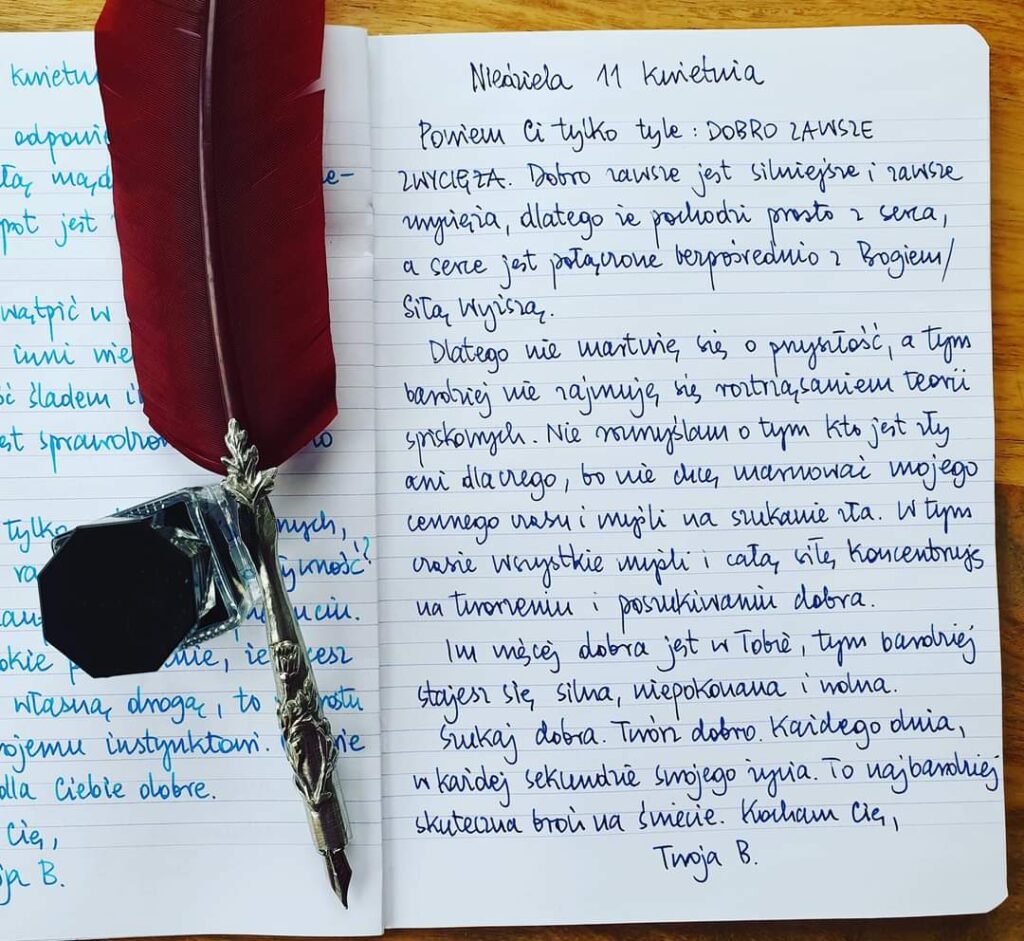 kwietn
odpowi
łą mąd
e-
pot jest
wątpić w
inni nie
ść śladem i
est sprawdzon
to
tylko
nych,
ra
żywność?
uciu.
okie p
nie, że
cesz
własną drogą, to
rostu
ojemu instynktowi.
nie
dla Ciebie dobre.
Cię,
ja B.
Niedziela 11 kwietnia
Powiem Ci tylko tyle : DOBRO ZAWSZE
ZWYCIĘŻA. Dobro zawsze jest silniejsze i zawsze
zwycięża, dlatego że pochodzi prosto z serca,
a serce jest połączone bezpośrednio z Bogiem/
Siłą Wyższą.
Dlatego nie martwię się o przyszłość, a tym
bardziej nie zajmuję się roztrząsaniem teorii
spiskowych. Nie rozmyślam o tym kto jest zły
ani dlaczego, bo nie chcę marnować mojego
cennego czasu i myśli na szukanie zła. W tym
czasie wszystkie myśli i całą siłę koncentruję
na tworzeniu i poszukiwaniu dobra.
Im więcej dobra jest w Tobie, tym bardziej
stajesz się silna, niepokonana i wolna.
Szukaj dobra. Twórz dobro. Każdego dnia,
w każdej sekundzie swojego życia. To najbardziej
skuteczna broń na świecie. Kocham Cię,
Twoja B.